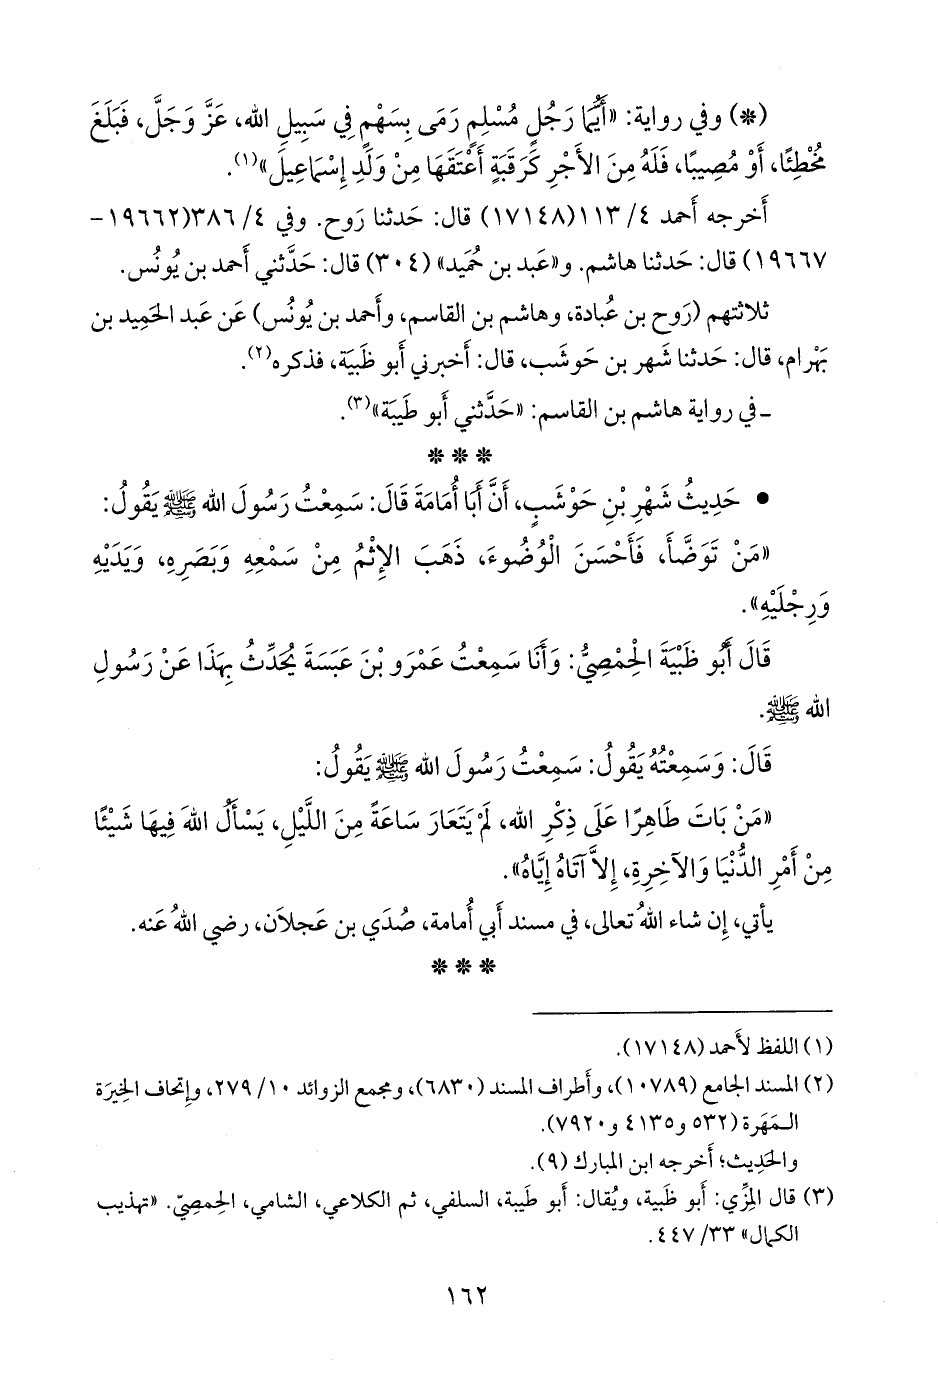 (*) وفي رواية: «أَيُّمَا رَجُلٍ مُسْلِمٍ رَمَى بِسَهْمٍ فِي سَبِيلِ الله، عَزَّ وَجَلَّ، فَبَلَغَ
مُخْطِئًا، أَوْ مُصِيبًا، فَلَهُ مِنَ الأَجْرِ كَرَقَبَةٍ أَعْتَقَهَا مِنْ وَلَدِ إِسْمَاعِيلَ»(١).
أخرجه أحمد ٤/ ١١٣(١٧١٤٨) قال: حَدثنا رَوح. وفي ٤/ ٣٨٦(١٩٦٦٢-
١٩٦٦٧) قال: حَدثنا هاشم. و«عَبد بن حُميد» (٣٠٤) قال: حَدَّثني أَحمد بن يُونُس.
ثلاثتهم (رَوح بن عُبادة، وهاشم بن القاسم، وأَحمد بن يُونُس) عَن عَبد الحَمِيد بن
بَهْرام، قال: حَدثنا شَهر بن حَوشَب، قال: أَخبرني أَبو ظَبيَة، فذكره(٢).
ـ في رواية هاشم بن القاسم: «حَدَّثني أَبو طَيبَة»(٣).
* * *
• حَدِيثُ شَهْرِ بْنِ حَوْشَبٍ، أَنَّ أَبَا أُمَامَةَ قَالَ: سَمِعْتُ رَسُولَ الله ﷺ يَقُولُ:
«مَنْ تَوَضَّأَ، فَأَحْسَنَ الْوُضُوءَ، ذَهَبَ الإِثْمُ مِنْ سَمْعِهِ وَبَصَرِهِ، وَيَدَيْهِ
وَرِجْلَيْهِ».
قَالَ أَبُو ظَبْيَةَ الْحِمْصِيُّ: وَأَنَا سَمِعْتُ عَمْرَو بْنَ عَبَسَةَ يُحَدِّثُ بِهَذَا عَنْ رَسُولِ
الله ﷺ.
قَالَ: وَسَمِعْتُهُ يَقُولُ: سَمِعْتُ رَسُولَ الله ﷺ يَقُولُ:
«مَنْ بَاتَ طَاهِرًا عَلَى ذِكْرِ الله، لَمْ يَتَعَارَ سَاعَةً مِنَ اللَّيْلِ، يَسْأَلُ اللهَ فِيهَا شَيْئًا
مِنْ أَمْرِ الدُّنْيَا وَالآخِرَةِ، إِلاَّ آتَاهُ إِيَّاهُ».
يأتي، إن شاء اللهُ تعالى، في مسند أَبي أُمامة، صُدَي بن عَجلاَن، رضي اللهُ عَنه.
* * *
(١) اللفظ لأَحمد (١٧١٤٨).
(٢) المسند الجامع (١٠٧٨٩)، وأَطراف المسند (٦٨٣٠)، ومجمع الزوائد ١٠/ ٢٧٩، وإتحاف الخِيرَة
المَهَرة (٥٣٢ و٤١٣٥ و٧٩٢٠).
والحَدِيث؛ أَخرجه ابن المبارك (٩).
(٣) قال المِزِّي: أَبو ظَبية، ويُقال: أَبو طَيبة، السلفي، ثم الكلاعي، الشامي، الحِمصيّ. «تهذيب
الكمال» ٣٣/ ٤٤٧.
١٦٢